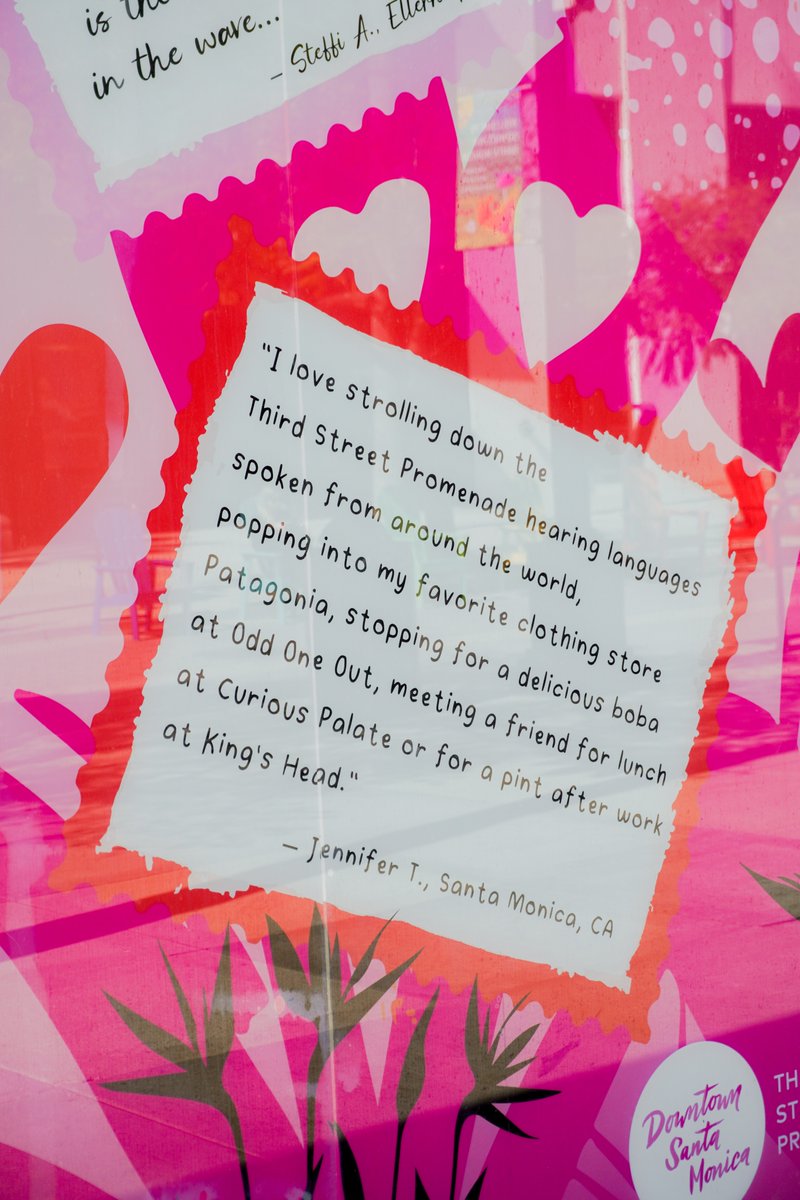 is the
in the wave...
– Steffi A.,
"I love strolling down the
Third Street Promenade hearing languages
spoken from around the world,
popping into my favorite clothing store
Patagonia, stopping for a delicious boba
at Odd One Out, meeting a friend for lunch
at Curious Palate or for a pint after work
at King's Head."
– Jennifer T., Santa Monica, CA
Downtown
Santa
Monica
TH
ST
PR